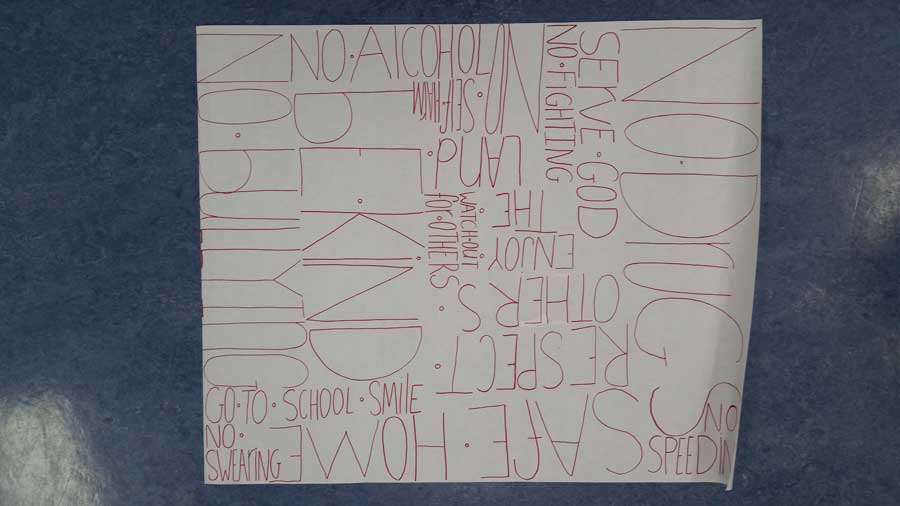 NO·BULLYING
NO·AlCOHOL
BE·KIND
NO·SElF·HARM
NO·FIGHTING
SErVE·GOD
NO·DrUGS
ENJOY
THE
LAND·
WATCH·OUT
for·OTHERS
RESPECT·
OTHERS·
GO·TO·SCHOOL·SMilE
NO·
SWEArING
SAfE·HOME
NO
SPEEDIN